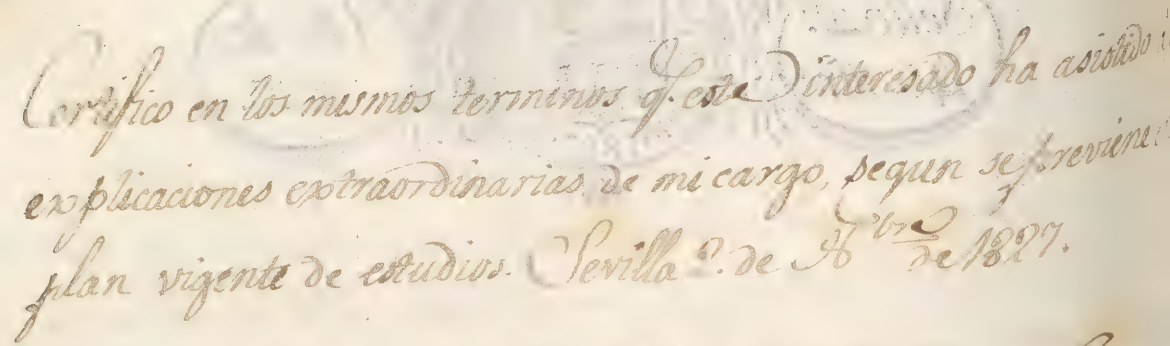 Certifico en los mismos terminos q.e este interesado ha asistido
explicaciones extraordinarias de mi cargo, segun se previene
plan vigente de estudios. Sevilla 2. de de 1827.